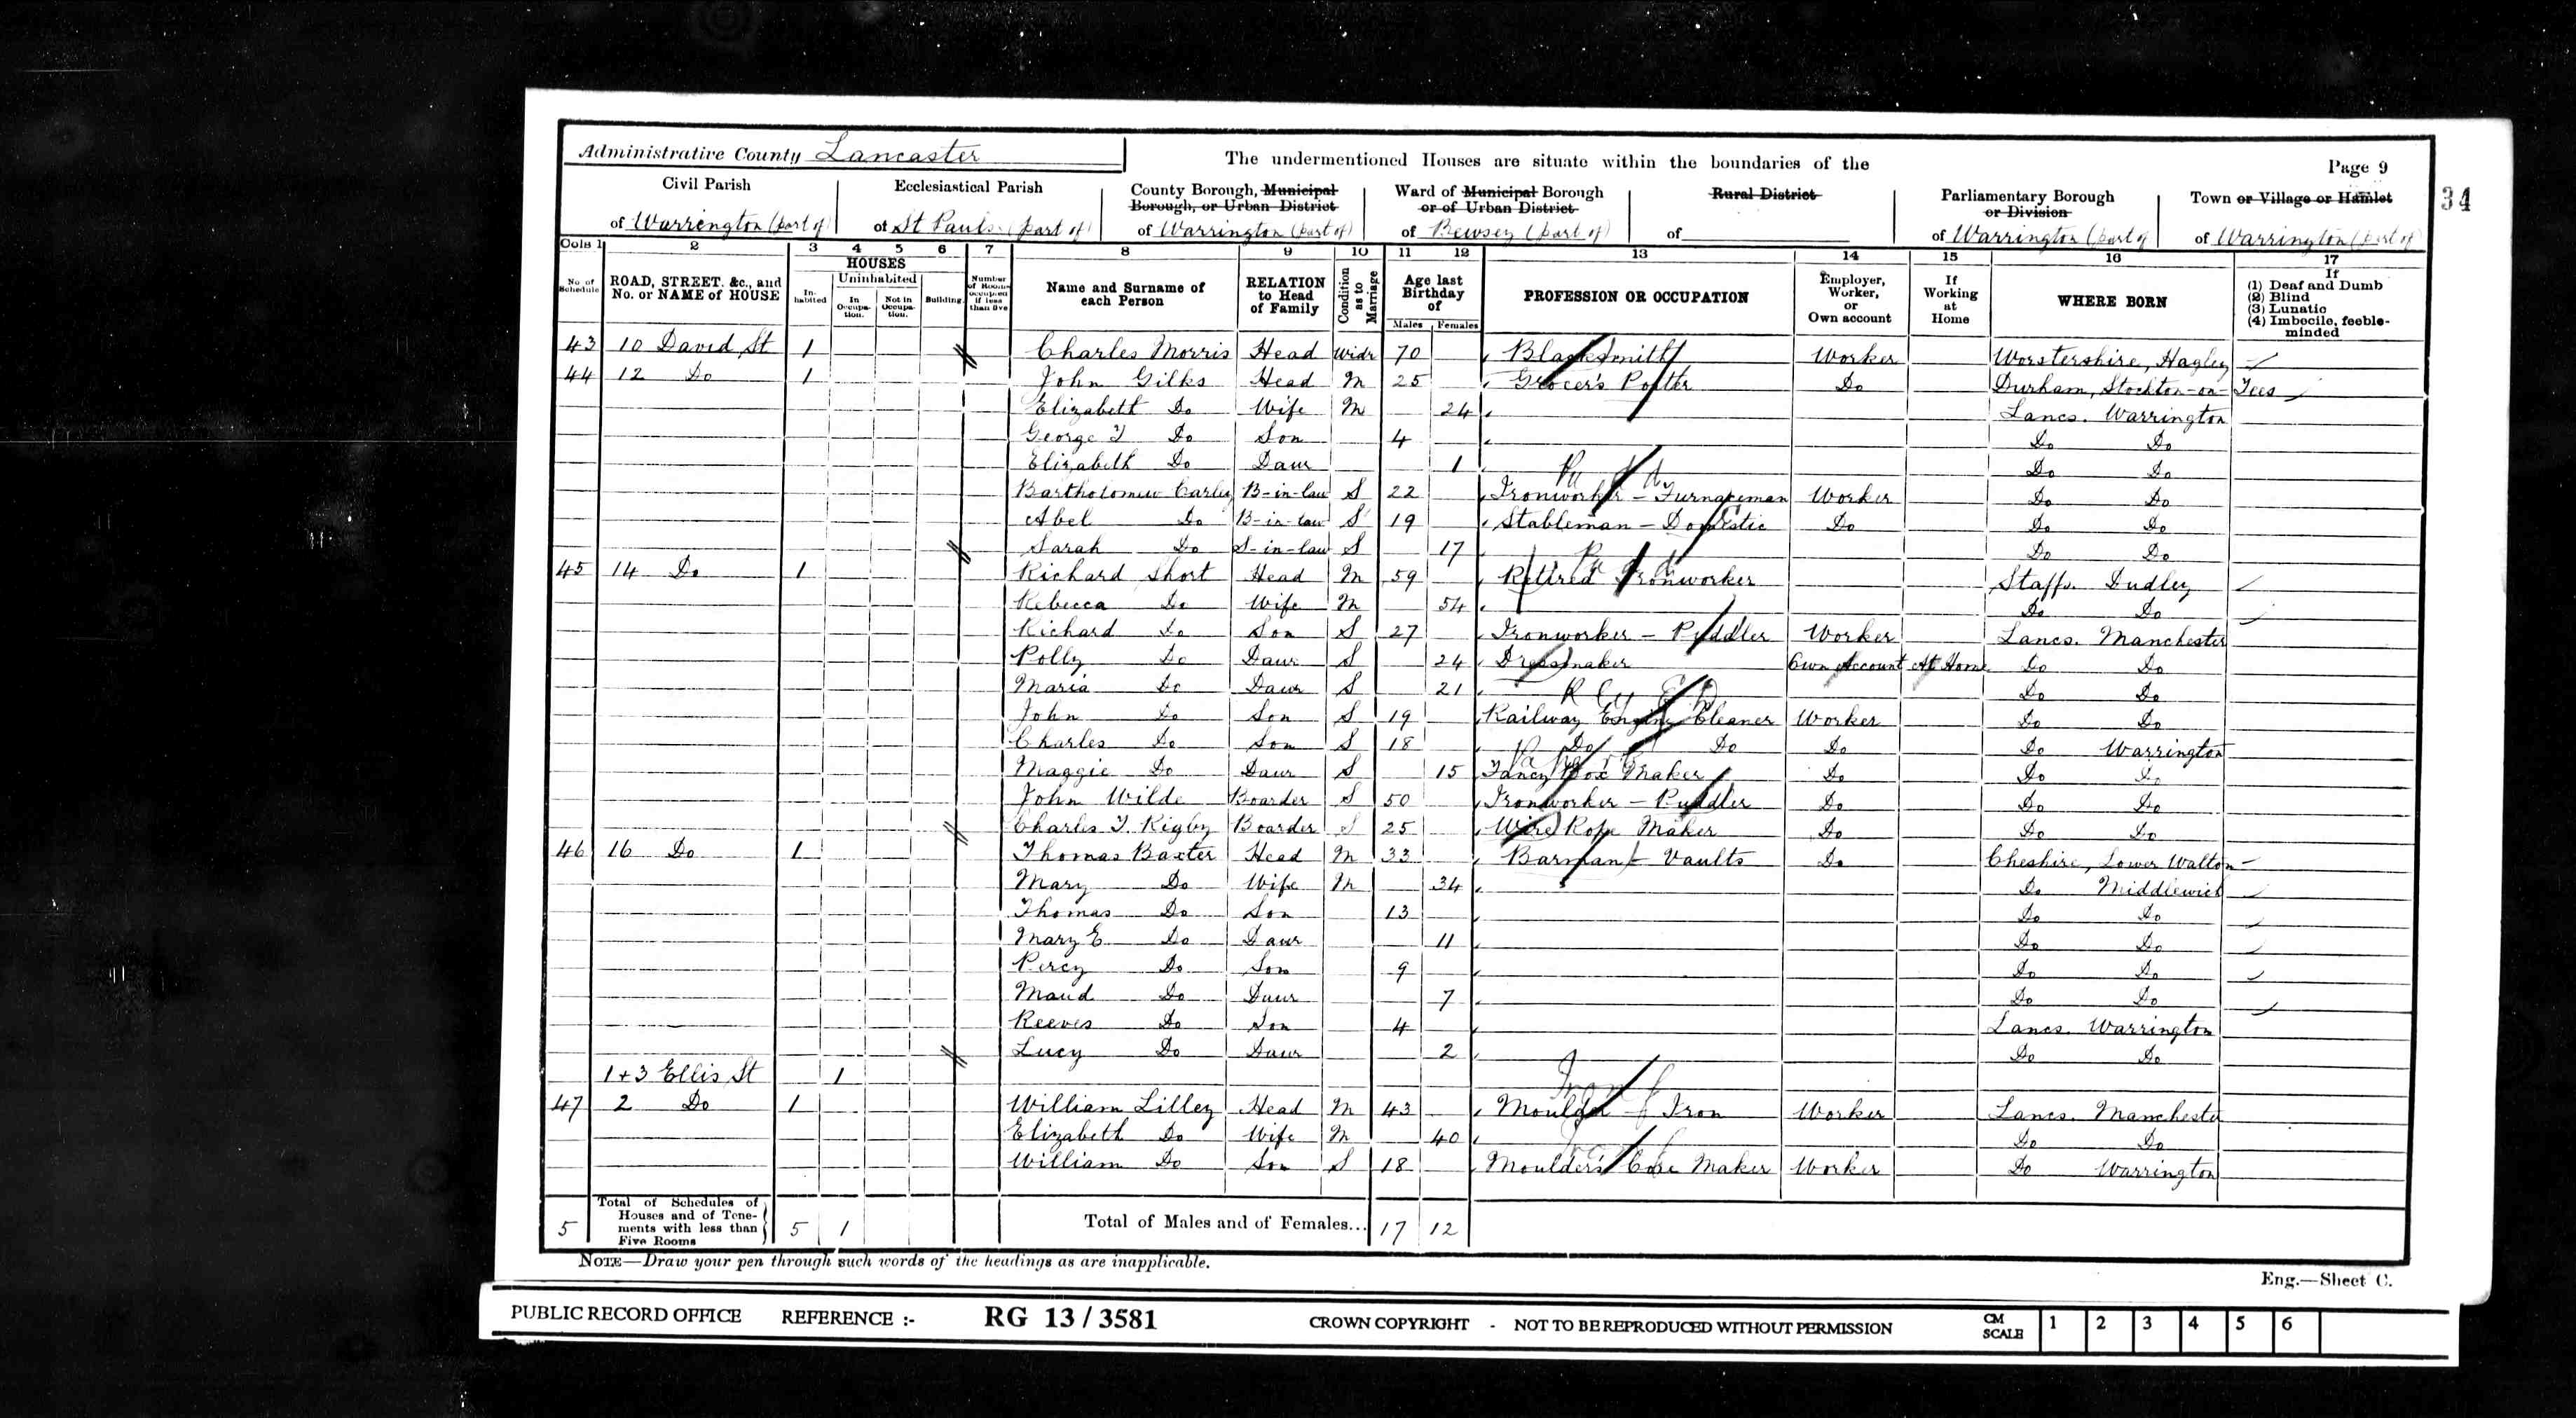 Administrative County Lancaster
The undermentioned Houses are situate within the boundaries of the
Page 9
34
Civil Parish of Warrington (part of)
Ecclesiastical Parish of St Pauls (part of)
County Borough, Municipal Borough, or Urban District of Warrington (part of)
Ward of Municipal Borough or of Urban District of Bewsey (part of)
Rural District of
Parliamentary Borough or Division of Warrington (part of
Town or Village or Hamlet of Warrington (part of)
Cols 1 2 3 4 5 6 7 8 9 10 11 12 13 14 15 16 17
No. of Schedule
ROAD, STREET, &c., and No. or NAME of HOUSE
HOUSES
In-habited
Uninhabited
In Occupa-tion.
Not in Occupa-tion.
Building.
Number of Rooms occupied if less than five
Name and Surname of each Person
RELATION to Head of Family
Condition as to Marriage
Age last Birthday of
Males Females
PROFESSION OR OCCUPATION
Employer, Worker, or Own account
If Working at Home
WHERE BORN
If
(1) Deaf and Dumb
(2) Blind
(3) Lunatic
(4) Imbecile, feeble-minded
43 10 David St 1 Charles Morris Head Widr 70 Blacksmith Worker Worstershire, Hagley
44 12 Do 1 John Gilks Head M 25 Grocer's Porter Do Durham, Stockton-on-Tees
Elizabeth Do Wife M 24 Lancs. Warrington
George T Do Son 4 Do Do
Elizabeth Do Daur 1 Do Do
Bartholomew Carley B-in-law S 22 Ironworker - Furnaceman Worker Do Do
Abel Do B-in-law S 19 Stableman - Domestic Do Do Do
Sarah Do S-in-law S 17 Do Do
45 14 Do 1 Richard Short Head M 59 Retired Ironworker Staffs. Dudley
Rebecca Do Wife M 54 Do Do
Richard Do Son S 27 Ironworker - Puddler Worker Lancs. Manchester
Polly Do Daur S 24 Dressmaker Own Account At Home Do Do
Maria Do Daur S 21 Do Do
John Do Son S 19 Railway Engine Cleaner Worker Do Do
Charles Do Son S 18 Do Do Do Do Warrington
Maggie Do Daur S 15 Fancy Box Maker Do Do Do
John Wilde Boarder S 50 Ironworker - Puddler Do Do Do
Charles T. Rigby Boarder S 25 Wire Rope Maker Do Do Do
46 16 Do 1 Thomas Baxter Head M 33 Barman - Vaults Do Cheshire, Lower Walton
Mary Do Wife M 34 Do Middlewich
Thomas Do Son 13 Do Do
Mary E Do Daur 11 Do Do
Percy Do Son 9 Do Do
Maud Do Daur 7 Do Do
Reeves Do Son 4 Lancs. Warrington
Lucy Do Daur 2 Do Do
1+3 Ellis St 1
47 2 Do 1 William Lilley Head M 43 Moulder - Iron Worker Lancs. Manchester
Elizabeth Do Wife M 40 Do Do
William Do Son S 18 Moulder's Core Maker Worker Do Warrington
5 Total of Schedules of Houses and of Tene-ments with less than Five Rooms 5 1 Total of Males and of Females... 17 12
NOTE—Draw your pen through such words of the headings as are inapplicable.
Eng.—Sheet C.
PUBLIC RECORD OFFICE REFERENCE :- RG 13/3581 CROWN COPYRIGHT - NOT TO BE REPRODUCED WITHOUT PERMISSION CM SCALE 1 2 3 4 5 6